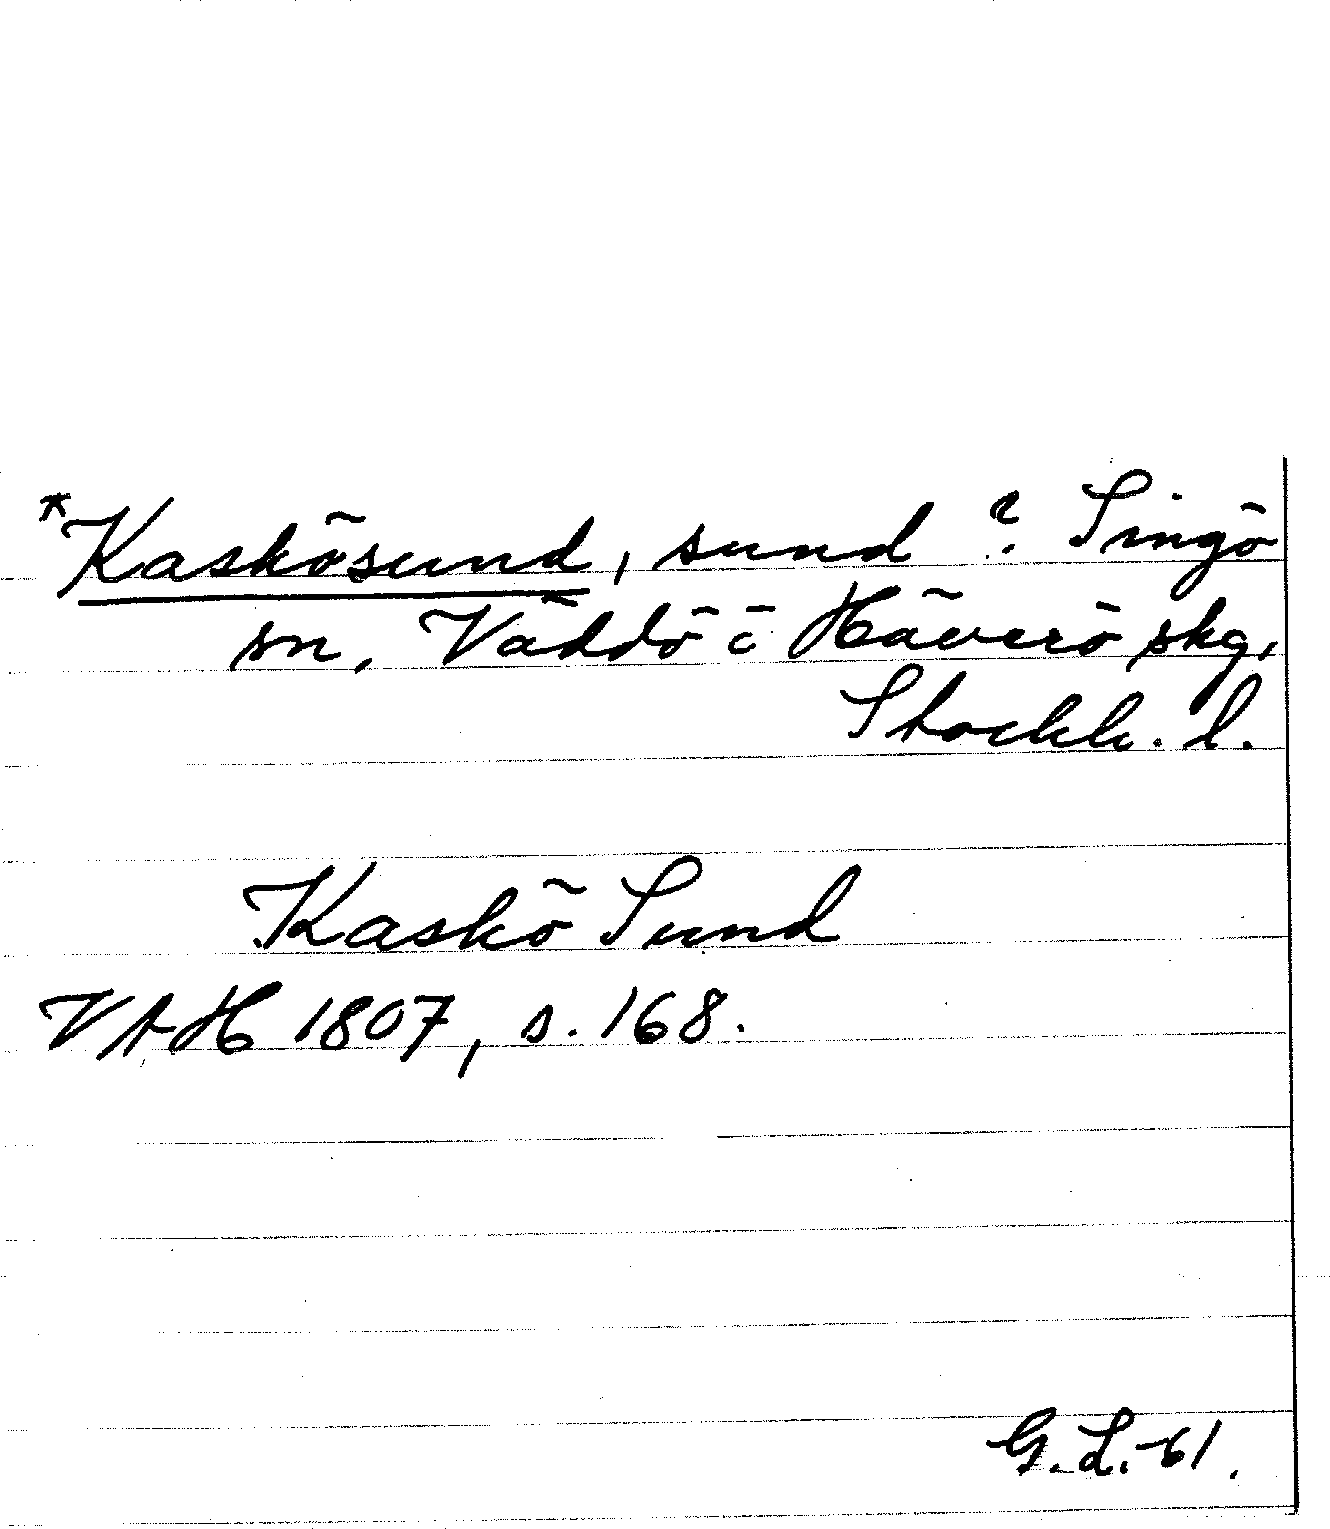 *Kaskösund, sund ? Singö
sn, Väddö o Häverö skg,
Stockh. l.
Kaskö Sund
VAH 1807, s. 168.
G.L.-61.